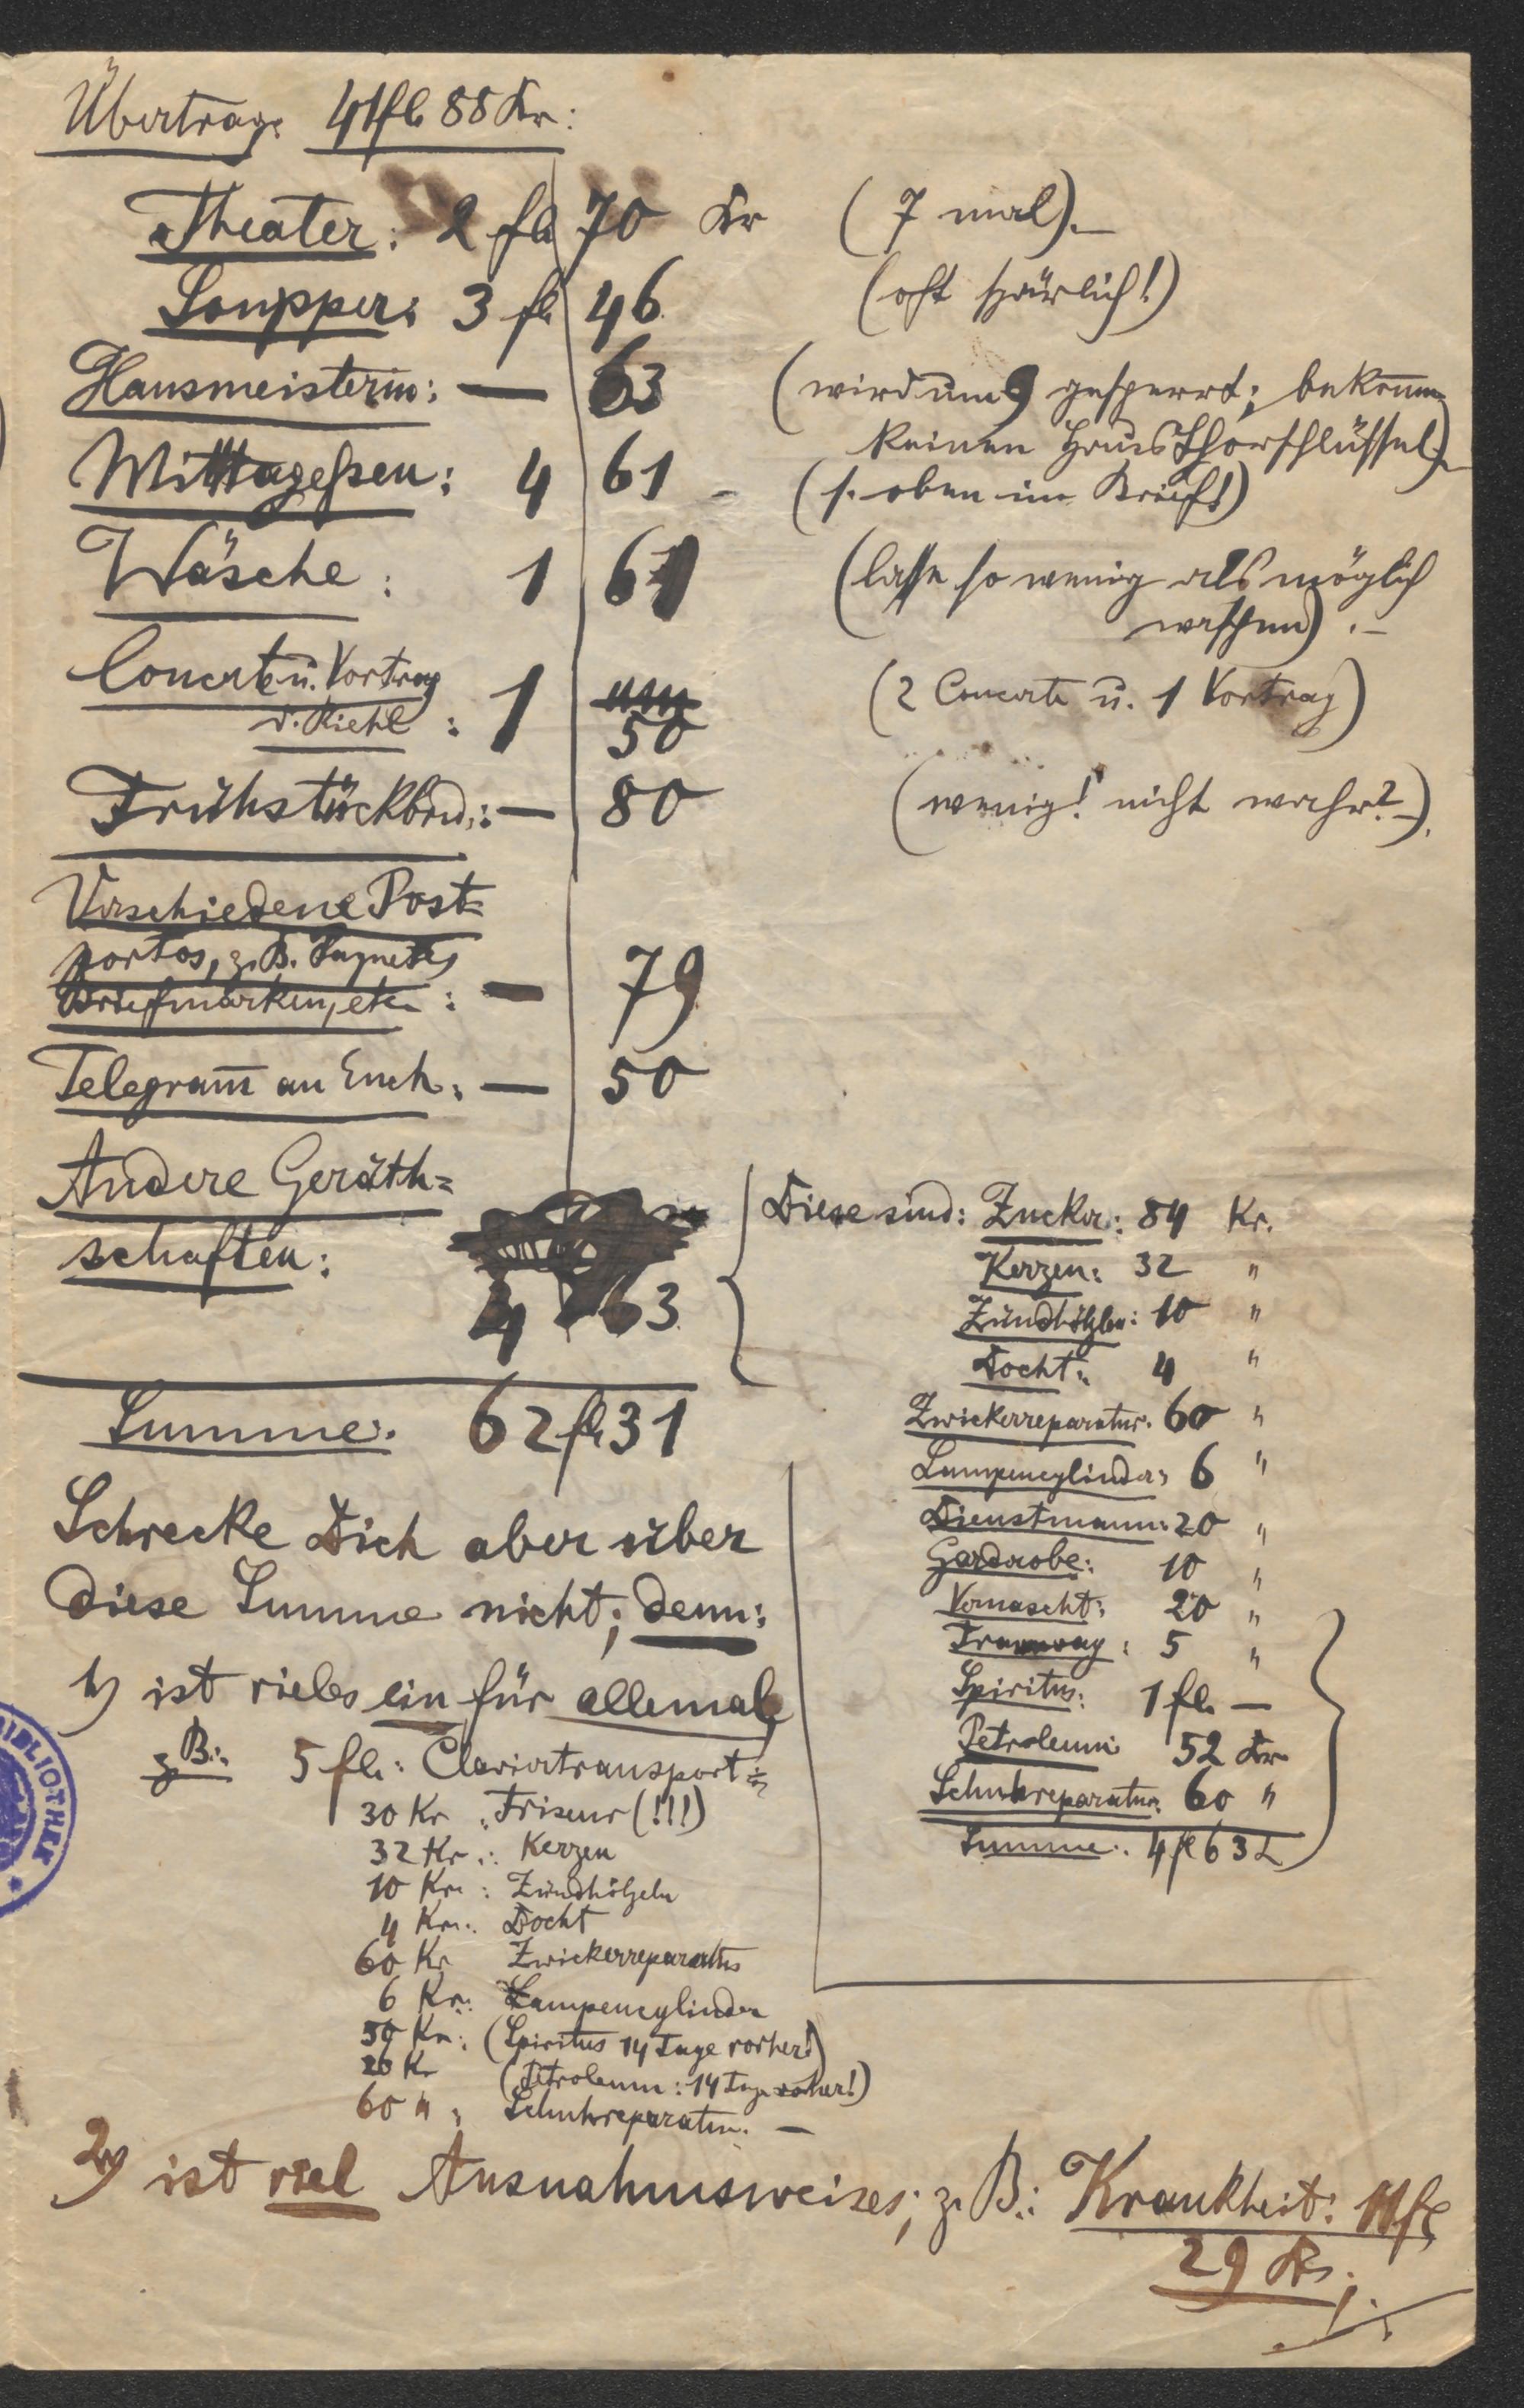 Übertrag: 41 fl. 88 Kr:
Theater: 2 fl. 70 Kr (7 mal).–
Soupper: 3 fl 46 (oft spärlich!)
Hausmeisterin: — 63 (wird um 9 gesperrt; bekomme
keinen Hausthorschlüssel).–
Mittagessen: 4 61 – (s. oben im Brief!)
Wäsche: 1 61 (lasse so wenig als möglich
waschen).–
Concerte u. Vortrag
v. Riehl: 1 50 (2 Concerte u. 1 Vortrag)
Frühstückbrod: — 80 (wenig! nicht wahr?–).
Verschiedene Post=
portos, z. B.
Briefmarken, etc.: — 79
Telegram̄ an Euch: — 50
Andere Geräth=
schaften:
4 63
Summe: 62 fl. 31
Schrecke Dich aber über
diese Summe nicht; denn:
1) ist vieles ein für allemal,
z. B.: 5 fl.: Claviertransport
30 Kr.: Friseur (!!!)
32 Kr.: Kerzen
10 Kr.: Zündhölzeln
4 Kr.: Docht
60 Kr Zwickerreparatur
6 Kr.: Lampencylinder
50 Kr.: (Spiritus 14 Tage vorher!)
26 Kr (Petroleum: 14 Tage vorher!)
60 ": Schuhreparatur. —
Diese sind: Zucker: 84 Kr.
Kerzen: 32 "
Zündhölzln: 10 "
Docht: 4 "
Zwickerreparatur: 60 "
Lampencylinder: 6 "
Dienstmann: 20 "
Garderobe: 10 "
Vernascht: 20 "
Tramway: 5 "
Spiritus: 1 fl. —
Petroleum 52 Kr
Schuhreparatur: 60 "
Summe: 4 fl 63
2) ist viel Ausnahmsweises; z. B.: Krankheit: 11 fl
29 Kr.;
BIBLIOTHEK